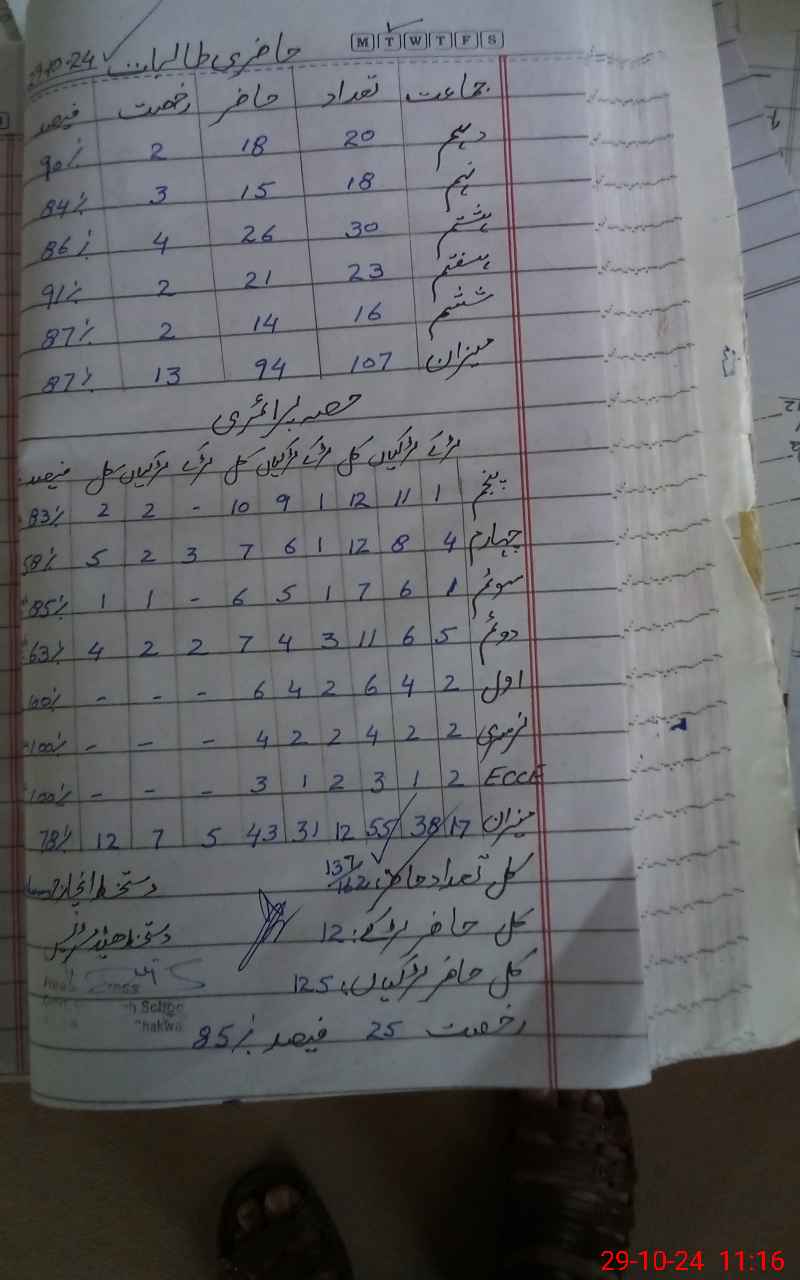 M T W T F S
حاضری طالبات 29-10-24
جماعت تعداد حاضر رخصت فیصد
دہم 20 18 2 90%
نہم 18 15 3 84%
ہشتم 30 26 4 86%
ہفتم 23 21 2 91%
ششم 16 14 2 87%
میزان 107 94 13 87%
حصہ پرائمری
لڑکے لڑکیاں کل لڑکے لڑکیاں کل لڑکے لڑکیاں کل فیصد
پنجم 1 11 12 1 9 10 - 2 2 83%
چہارم 4 8 12 1 6 7 3 2 5 58%
سوئم 1 6 7 1 5 6 - 1 1 85%
دوئم 5 6 11 3 4 7 2 2 4 63%
اول 2 4 6 2 4 6 - - - 100%
نرسری 2 2 4 2 2 4 - - - 100%
ECCE 2 1 3 2 1 3 - - - 100%
میزان 17 38 55 12 31 43 5 7 12 78%
کل تعداد حاضر: 137/162 دستخط انچارج
کل حاضر لڑکے: 12 دستخط ہیڈمسٹریس
کل حاضر لڑکیاں: 125
رخصت 25 فیصد 85%
29-10-24 11:16